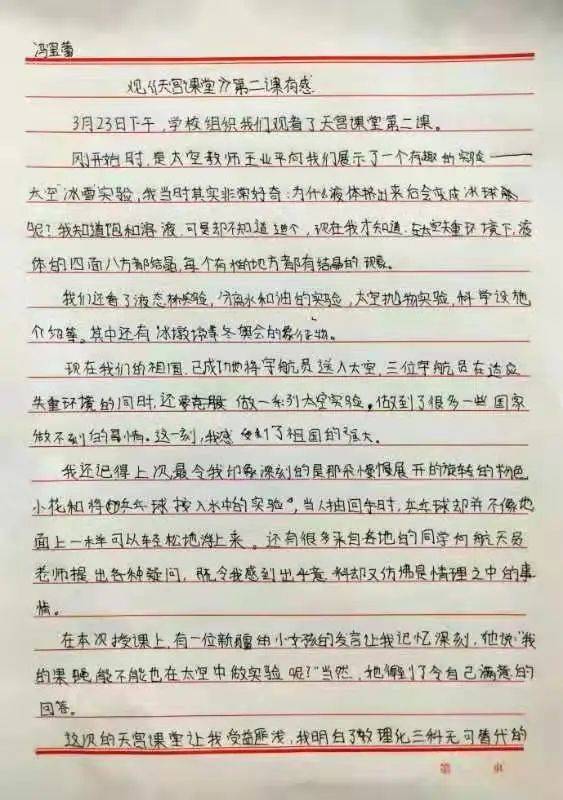 冯
观《天宫课堂》第二课有感
3月23日下午,学校组织我们观看了天宫课堂第二课。
刚开始时,是太空教师王亚平向我们展示了一个有趣的实验——
太空"冰雪"实验,我当时其实非常好奇:为什么液体挤出来后会变成冰球
呢?我知道饱和溶液,可是却不知道这个,现在我才知道,在失重环境下,液
体的四面八方都结晶,每个有的地方都有结晶的现象。
我们还看了液态桥实验,分离水和油的实验,太空抛物实验,科学设施
介绍等。其中还有冰墩墩等冬奥会的象征物。
现在我们的祖国,已成功地将宇航员送入太空,三位宇航员在适应
失重环境的同时,还要克服做一系列太空实验。做到了很多一些国家
做不到的事情。这一刻,我感受到了祖国的强大。
我还记得上次最令我印象深刻的是那朵慢慢展开的旋转的粉色
小花和将"乒乓球按入水中的实验",当人抽回手时,乒乓球却并不像地
面上一样可以轻松地浮上来。还有很多来自各地的同学向航天员
老师提出各种疑问,既令我感到出乎意料却又仿佛是情理之中的事
情。
在本次授课上,有一位新疆的小女孩的发言让我记忆深刻,她说"我
的果腿,能不能也在太空中做实验呢?"当然,她得到了令自己满意的
回答。
这次的天宫课堂让我受益匪浅,我明白了数理化三科无可替代的
第 页